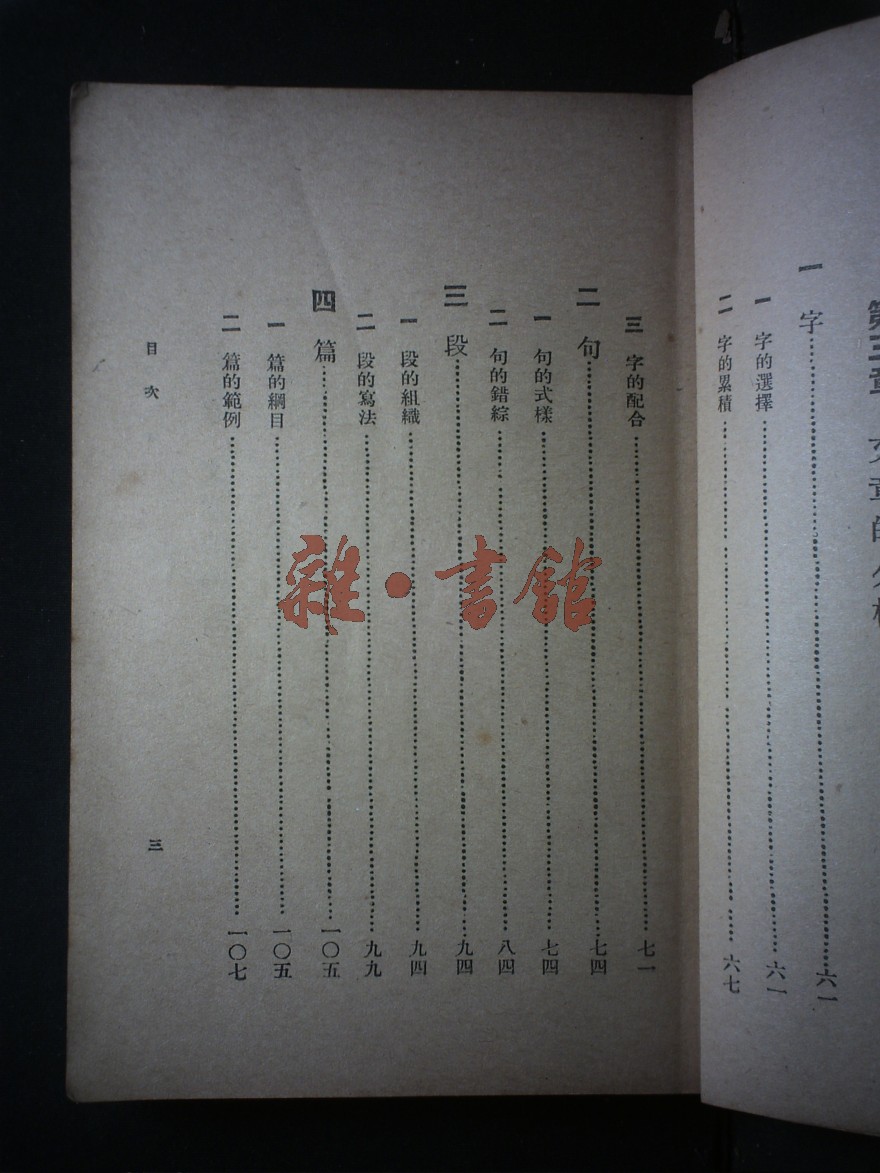 第三章 文章的分析
一 字……六一
一 字的選擇……六一
二 字的累積……六七
三 字的配合……七一
二 句……七四
一 句的式樣……七四
二 句的錯綜……八四
三 段……九四
一 段的組織……九四
二 段的寫法……九九
四 篇……一〇五
一 篇的綱目……一〇五
二 篇的範例……一〇七
目次
三
雜·書館